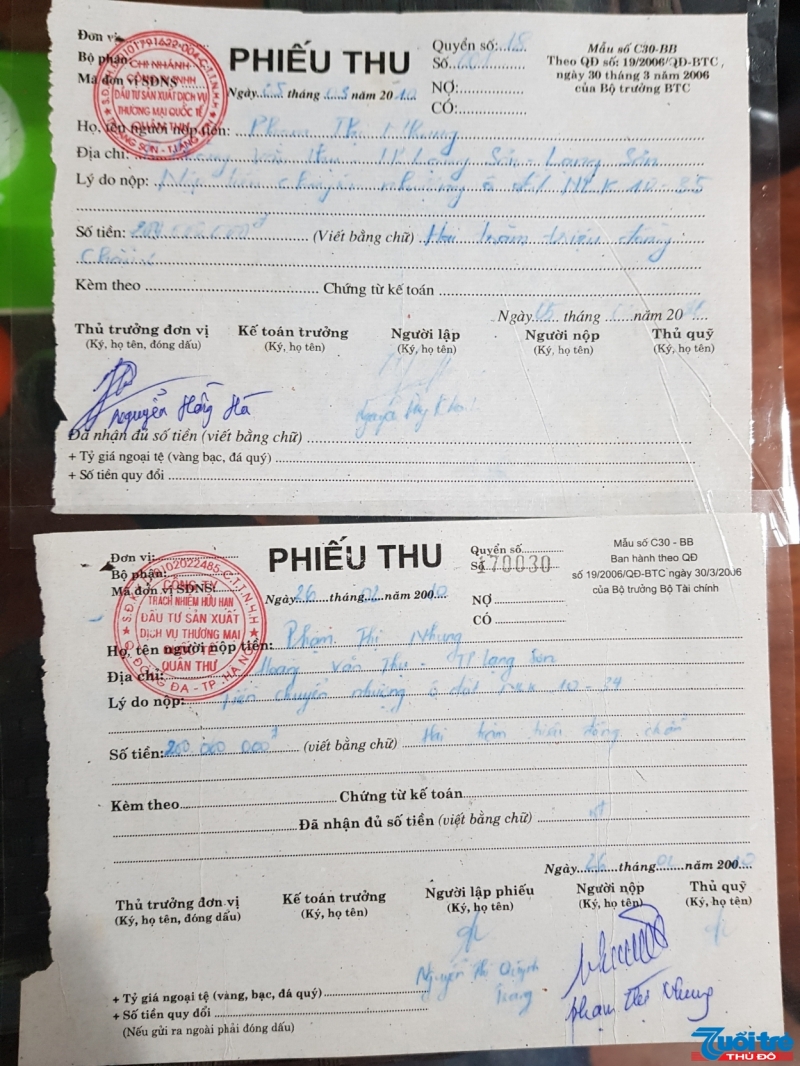 Đơn vị
Bộ phận:
Mã đơn vị SDNS
PHIẾU THU
Ngày 25 tháng 05 năm 2010
Quyển số: 18
Số 001
NỢ:
CÓ:
Mẫu số C30-BB
Theo QĐ số: 19/2006/QĐ-BTC,
ngày 30 tháng 3 năm 2006
của Bộ trưởng BTC
CHI NHÁNH
ĐẦU TƯ SẢN XUẤT DỊCH VỤ
THƯƠNG MẠI QUỐC TẾ
QUÂN THƯ
Họ, tên người nộp tiền: Phạm Thị Nhung
Địa chỉ: Hoàng Văn Thụ TP Lạng Sơn - Lạng Sơn
Lý do nộp: Nộp tiền chuyển nhượng ô đất NLK 10-35
Số tiền: 200.000.000đ (Viết bằng chữ) Hai trăm triệu đồng
chẵn
Kèm theo Chứng từ kế toán
Ngày 05 tháng năm 20
Thủ trưởng đơn vị Kế toán trưởng Người lập Người nộp Thủ quỹ
(Ký, họ tên, đóng dấu) (Ký, họ tên) (Ký, họ tên) (Ký, họ tên) (Ký, họ tên)
Nguyễn Hồng Hà
Đã nhận đủ số tiền (viết bằng chữ)
+ Tỷ giá ngoại tệ (vàng bạc, đá quý)
+ Số tiền quy đổi
Đơn vị:
Bộ phận:
Mã đơn vị SDNS:
PHIẾU THU
Ngày 26 tháng 01 năm 200 10
Quyển số
Số 170030
NỢ
CÓ
Mẫu số C30 - BB
Ban hành theo QĐ
số 19/2006/QĐ-BTC ngày 30/3/2006
của Bộ trưởng Bộ Tài chính
S.Đ.K 0102022485-C.T.T.N.H.H
CÔNG TY
TRÁCH NHIỆM HỮU HẠN
ĐẦU TƯ SẢN XUẤT
DỊCH VỤ THƯƠNG MẠI
QUỐC TẾ
QUÂN THƯ
Q. ĐỐNG ĐA - TP. HÀ NỘI
Họ, tên người nộp tiền: Phạm Thị Nhung
Địa chỉ: Hoàng Văn Thụ - TP Lạng Sơn
Lý do nộp: Tiền chuyển nhượng ô đất NLK 10 - 34
Số tiền: 200 000 000đ (viết bằng chữ) Hai trăm triệu đồng chẵn
Kèm theo Chứng từ kế toán
Đã nhận đủ số tiền (viết bằng chữ)
Ngày 26 tháng 01 năm 200 10
Thủ trưởng đơn vị Kế toán trưởng Người lập phiếu Người nộp Thủ quỹ
(Ký, họ tên, đóng dấu) (Ký, họ tên) (Ký, họ tên) (Ký, họ tên) (Ký, họ tên)
Nguyễn Thị Quỳnh
Trang
Phạm Thị Nhung
+ Tỷ giá ngoại tệ (vàng, bạc, đá quý)
+ Số tiền quy đổi
(Nếu gửi ra ngoài phải đóng dấu)
Tuổi trẻ
THỦ ĐÔ